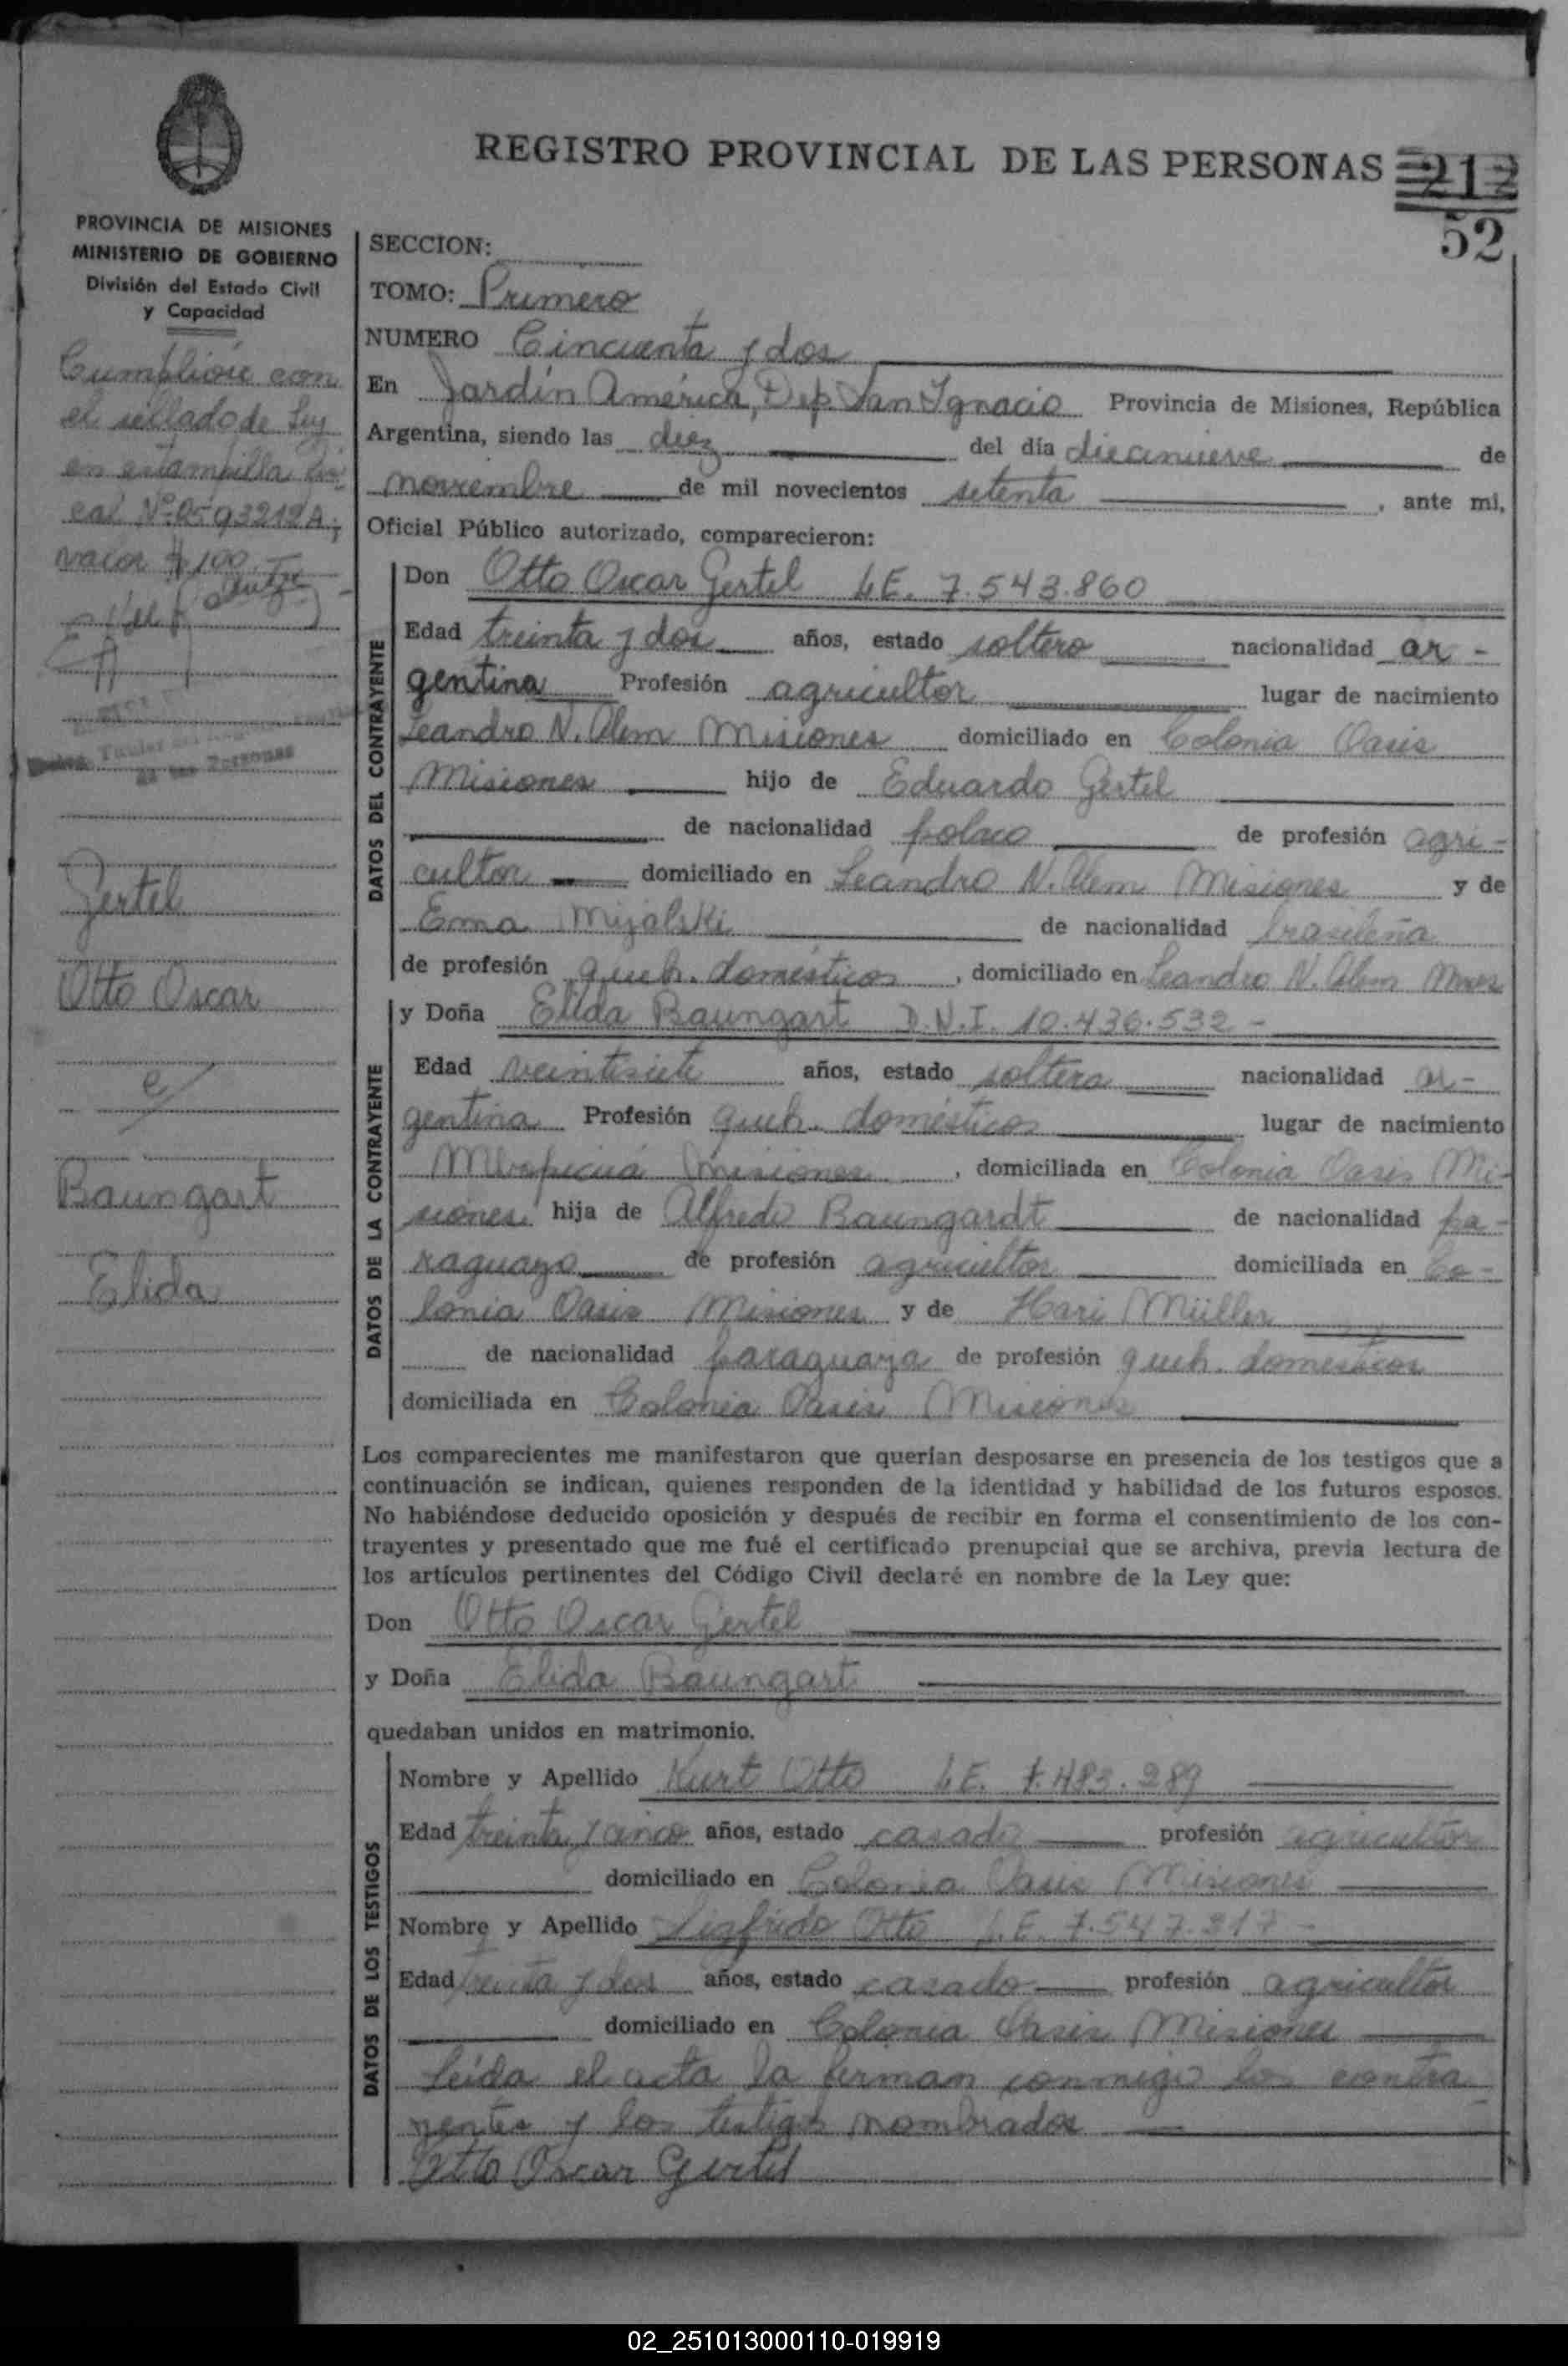 REGISTRO PROVINCIAL DE LAS PERSONAS 212
52
PROVINCIA DE MISIONES
MINISTERIO DE GOBIERNO
División del Estado Civil
y Capacidad
Cumplióse con
el sellado de Ley
en estampilla fis-
cal Nº 0593212A,
valor $ 100.
Titular del
de las Personas
Gertel
Otto Oscar
e/
Baungart
Elida
SECCION:
TOMO: Primero
NUMERO Cincuenta y dos
En Jardín América, Dep. San Ignacio Provincia de Misiones, República
Argentina, siendo las diez del día diecinueve de
noviembre de mil novecientos setenta, ante mi,
Oficial Público autorizado, comparecieron:
DATOS DEL CONTRAYENTE
Don Otto Oscar Gertel L.E. 7.543.860
Edad treinta y dos años, estado soltero nacionalidad ar-
gentina Profesión agricultor lugar de nacimiento
Leandro N. Alem Misiones domiciliado en Colonia Oasis
Misiones hijo de Eduardo Gertel
de nacionalidad polaco de profesión agri-
cultor domiciliado en Leandro N. Alem Misiones y de
Ema Mijalski de nacionalidad brasileña
de profesión queh. domésticos, domiciliado en Leandro N. Alem Mnes
DATOS DE LA CONTRAYENTE
y Doña Elida Baungart D.N.I. 10.436.532 -
Edad veintisiete años, estado soltera nacionalidad ar-
gentina Profesión queh. domésticos lugar de nacimiento
Mbopicuá Misiones, domiciliada en Colonia Oasis Mi-
siones hija de Alfredo Baungardt de nacionalidad pa-
raguayo de profesión agricultor domiciliada en Co-
lonia Oasis Misiones y de Hari Müller
de nacionalidad paraguaya de profesión queh. domésticos
domiciliada en Colonia Oasis Misiones
Los comparecientes me manifestaron que querían desposarse en presencia de los testigos que a
continuación se indican, quienes responden de la identidad y habilidad de los futuros esposos.
No habiéndose deducido oposición y después de recibir en forma el consentimiento de los con-
trayentes y presentado que me fué el certificado prenupcial que se archiva, previa lectura de
los artículos pertinentes del Código Civil declaré en nombre de la Ley que:
Don Otto Oscar Gertel
y Doña Elida Baungart
quedaban unidos en matrimonio.
DATOS DE LOS TESTIGOS
Nombre y Apellido Kurt Otto L.E. 7.483.289
Edad treinta y cinco años, estado casado profesión agricultor
domiciliado en Colonia Oasis Misiones
Nombre y Apellido Sigfrido Otto L.E. 7.547.317 -
Edad treinta y dos años, estado casado profesión agricultor
domiciliado en Colonia Oasis Misiones
Leída el acta la firman conmigo los contra-
yentes y los testigos nombrados
Otto Oscar Gertel
02_251013000110-019919